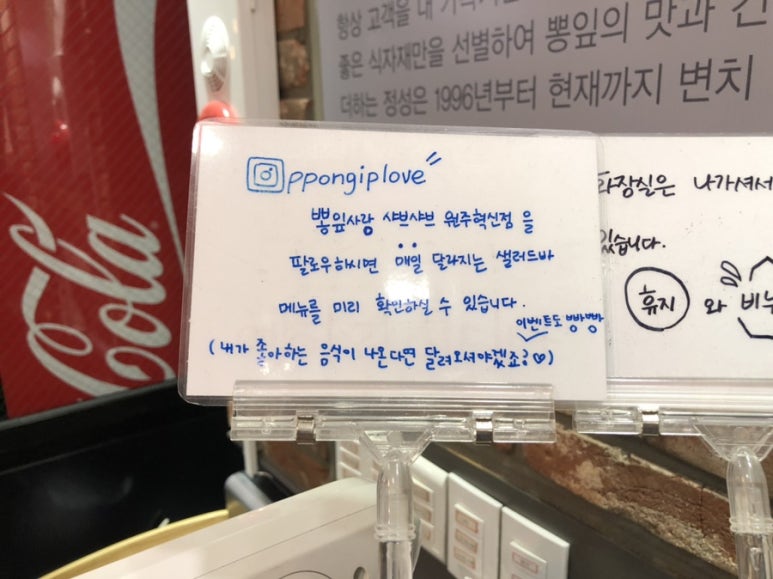 항상 고객을 내
좋은 식자재만을 선별하여 뽕잎의 맛과
더하는 정성은 1996년부터 현재까지 변치
Cola
ppongiplove
뽕잎사랑 샤브샤브 원주혁신점 을
팔로우하시면 매일 달라지는 샐러드바
메뉴를 미리 확인하실 수 있습니다.
이벤트도 빵빵
(내가 좋아하는 음식이 나온다면 달려오셔야겠죠?♡)
화장실은 나가셔서
있습니다.
휴지 와 비누